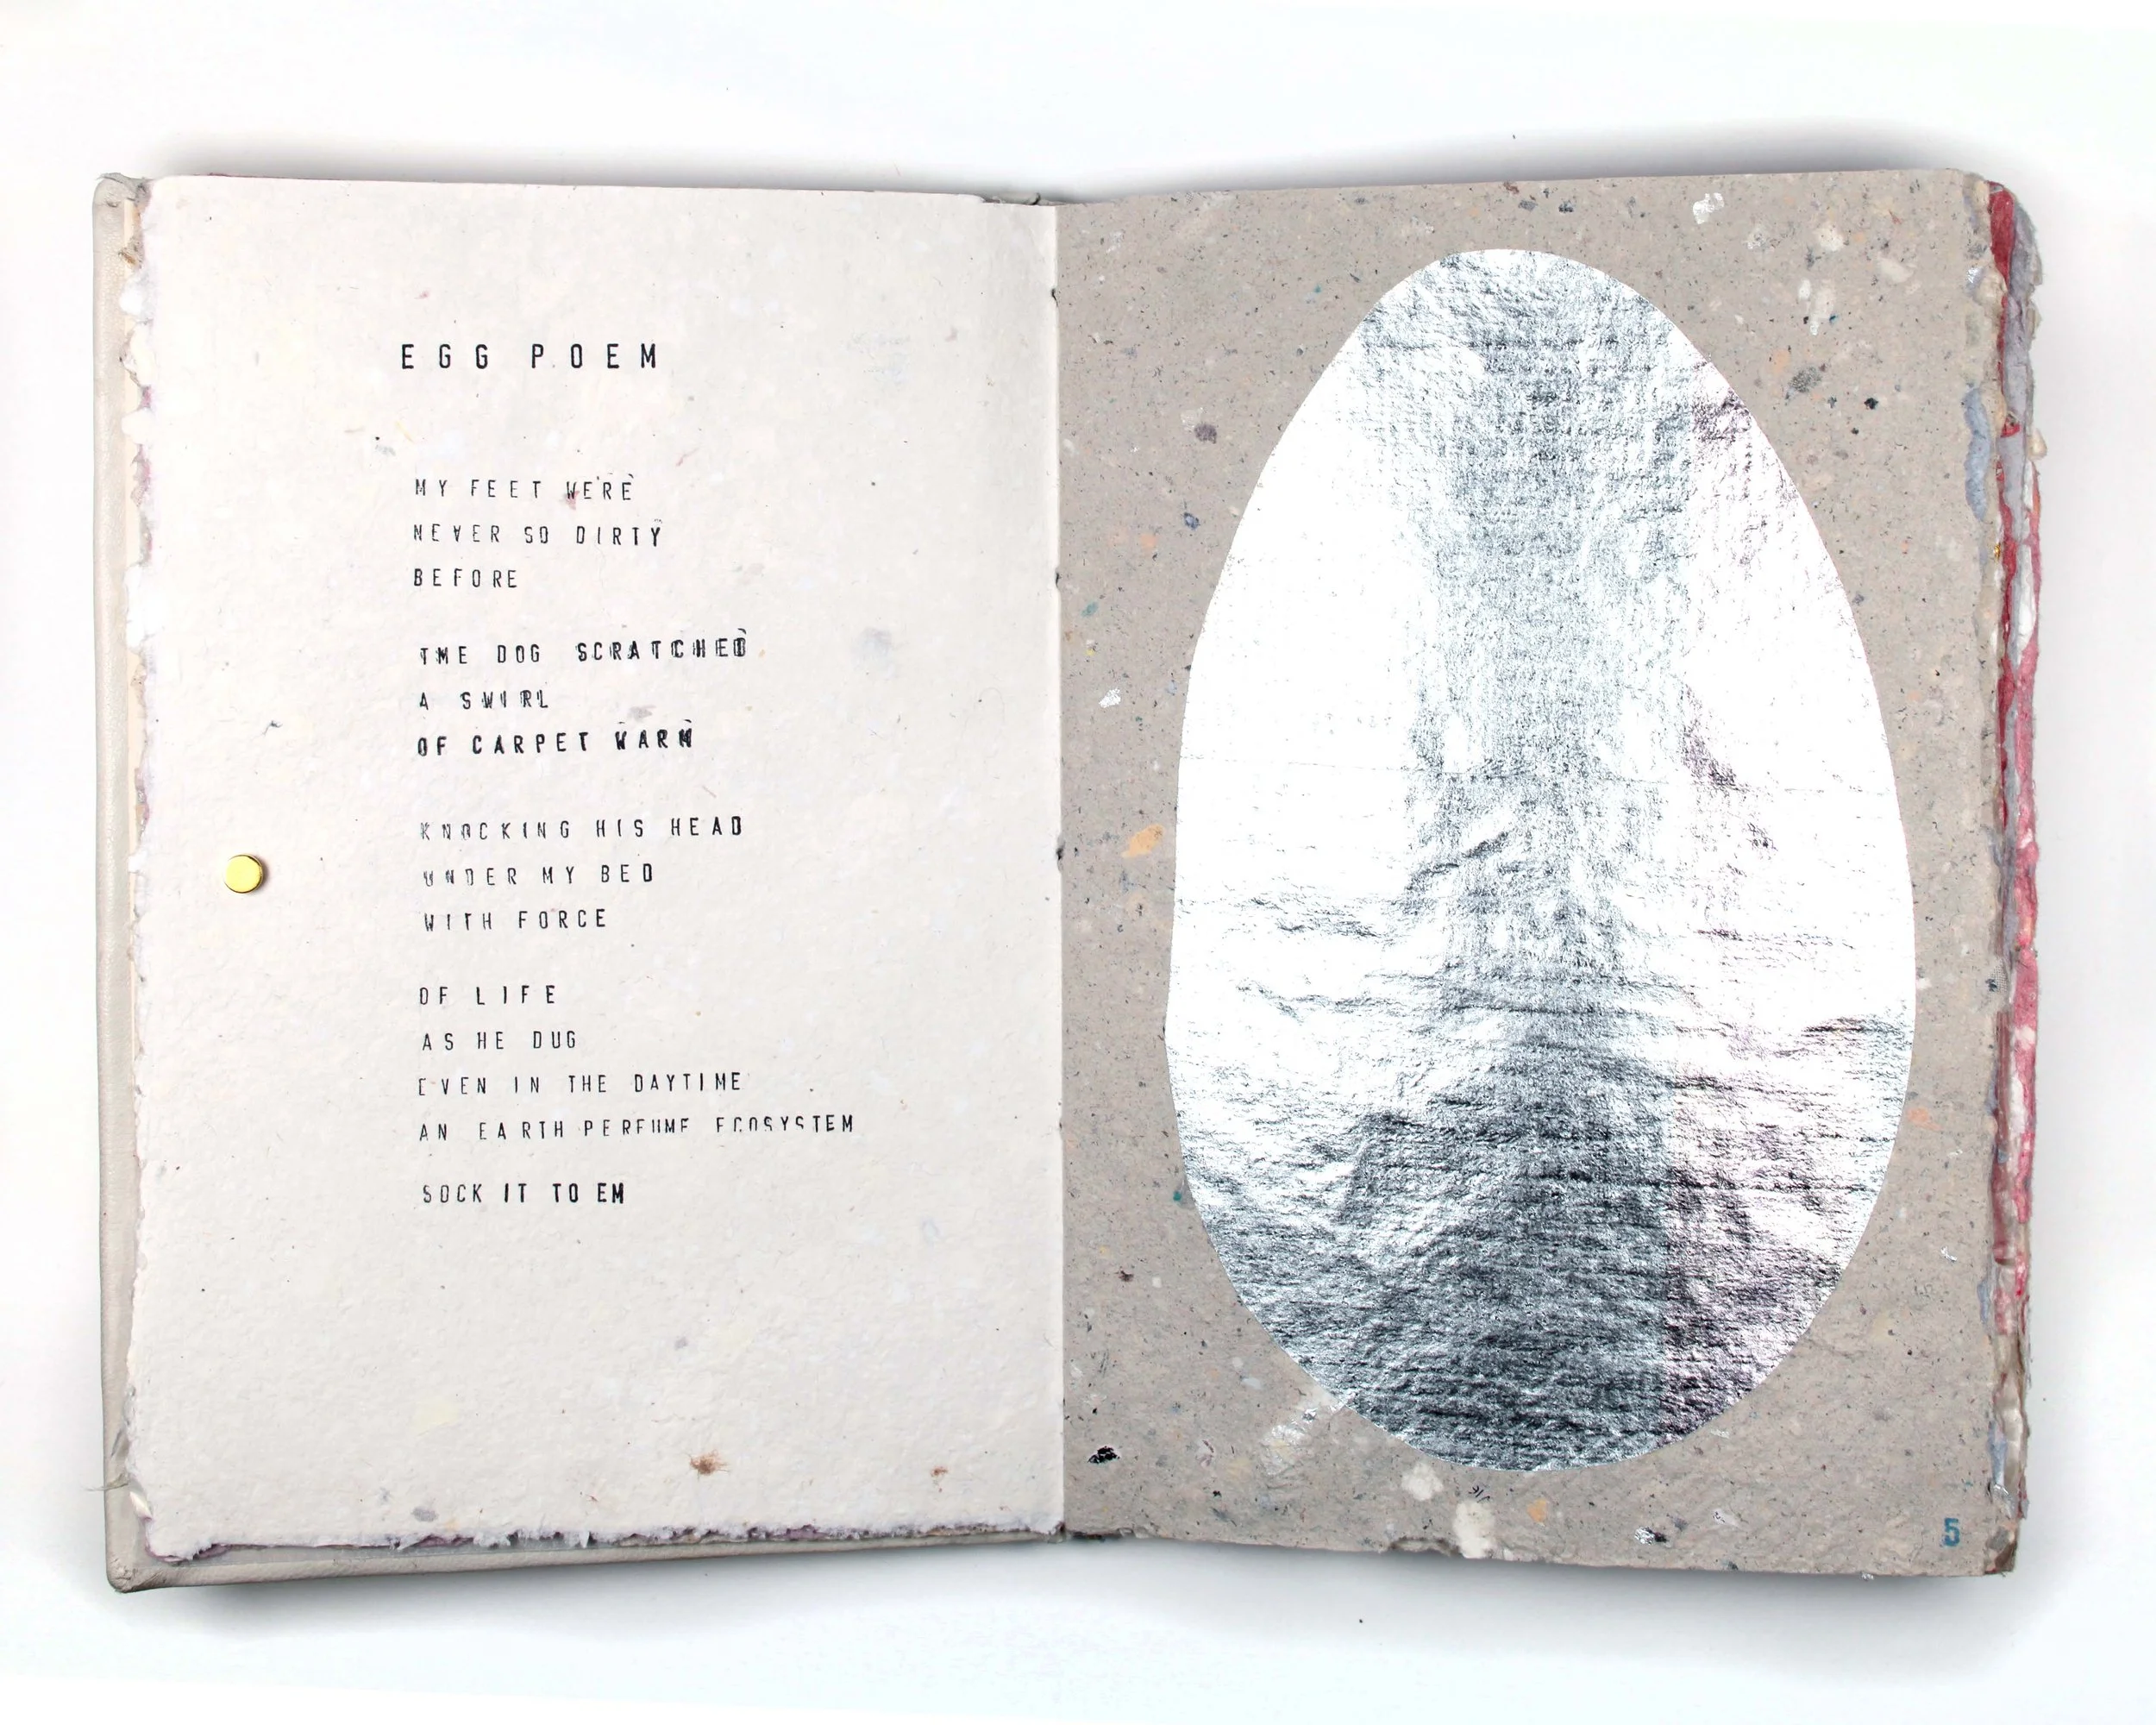 EGG POEM
MY FEET WERE
NEVER SO DIRTY
BEFORE
THE DOG SCRATCHED
A SWIRL
OF CARPET WARM
KNOCKING HIS HEAD
UNDER MY BED
WITH FORCE
OF LIFE
AS HE DUG
EVEN IN THE DAYTIME
AN EARTH PERFUME ECOSYSTEM
SOCK IT TO EM
5